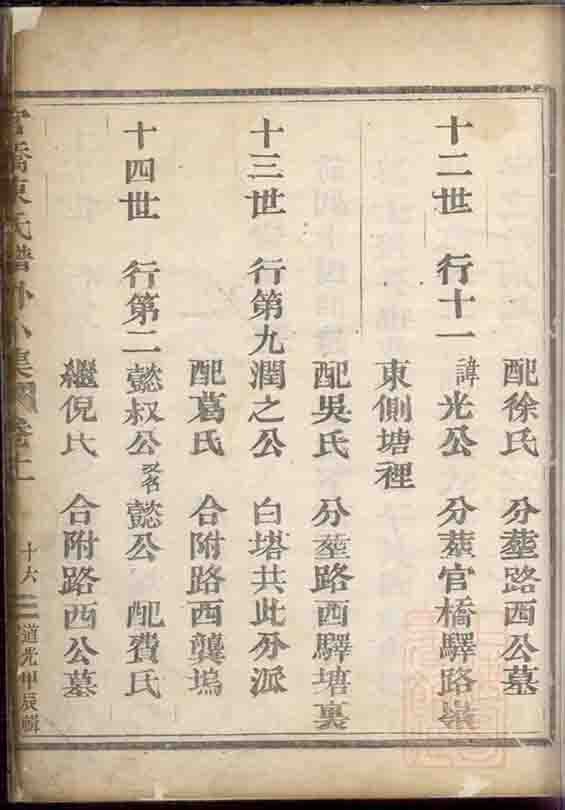 配徐氏 分塟路西公墓
十二世 行十一諱光公 分葬官橋驛路
東側塘裡
配吳氏 分塟路西驛塘裏
十三世 行第九潤之公 白塔共此分派
配葛氏 合附路西龔塢
十四世 行第二懿叔公又名懿公 配費氏
繼倪氏 合附路西公墓
橋東氏譜外 集 卷上 十六 道光甲辰輯